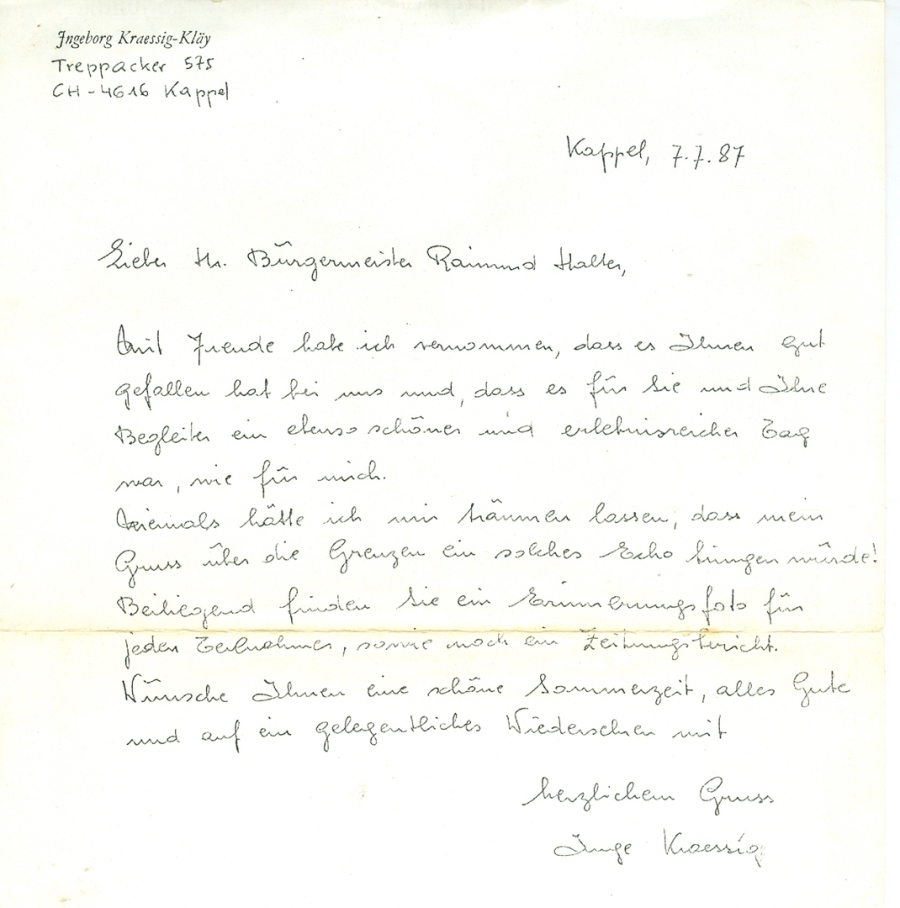 Ingeborg Kraessig-Kläy
Treppacker 575
CH-4616 Kappel
Kappel, 7.7.87
Lieber Hr. Bürgermeister Raimund Halter,
Mit Freude habe ich vernommen, dass es Ihnen gut
gefallen hat bei uns und, dass es für Sie und Ihre
Begleiter ein ebenso schöner und erlebnisreicher Tag
war, wie für mich.
Niemals hätte ich mir träumen lassen, dass mein
Gruss über die Grenzen ein solches Echo bringen würde!
Beiliegend finden Sie ein Erinnerungsfoto für
jeden Teilnehmer, sowie noch ein Zeitungsbericht.
Wünsche Ihnen eine schöne Sommerzeit, alles Gute
und auf ein gelegentliches Wiedersehen mit
herzlichem Gruss
Inge Kraessig